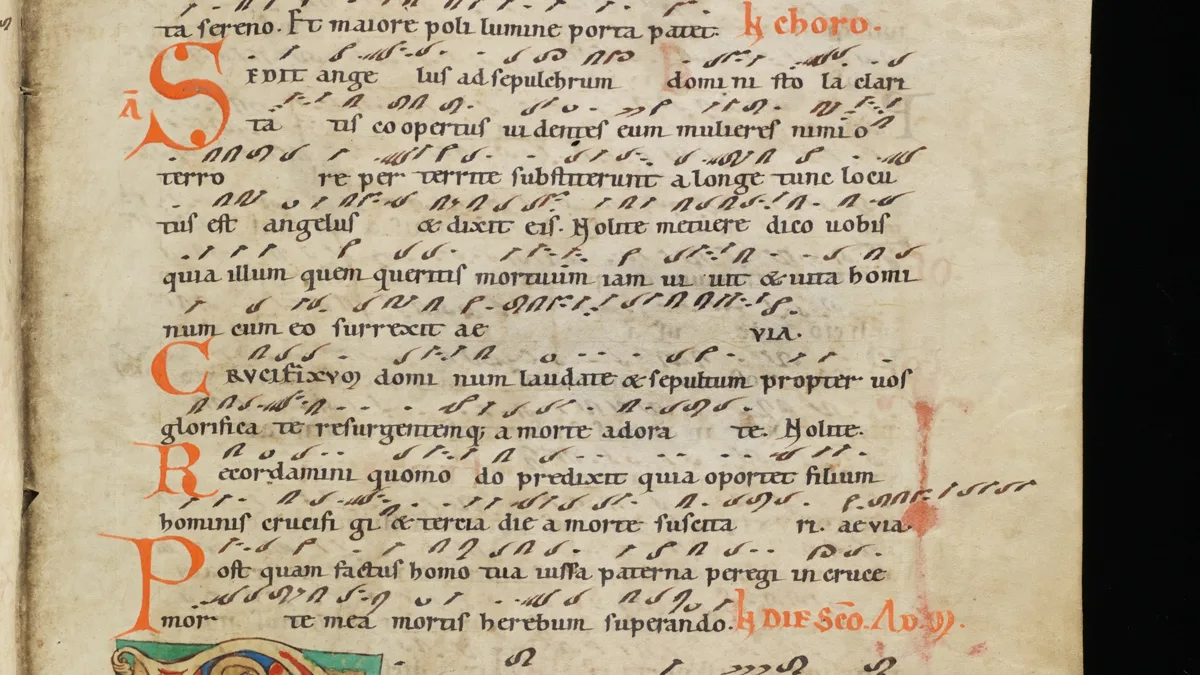 ta sereno. Et maiore poli lumine porta patet. In choro.
A SEDIT ange lus ad sepulchrum domini ni sto la clari
ta tis co opertus ui dentes eum mulieres nimi o
terro re per territe substiterunt a longe tunc locu
tus est angelus & dixit eis. Nolite metuere dico uobis
quia illum quem queritis mortuum iam ui uit & uita homi
num cum eo surrexit ae VIA.
CRVCIFIXVM domi num laudate & sepultum propter uos
glorifica te resurgentemq; a morte adora te. Nolite.
Recordamini quomo do predixit quia oportet filium
hominis crucifi gi & tercia die a morte suscita ri. aevia.
Post quam factus homo tua iussa paterna peregi in cruce
mor te mea mortis herebum superando. DIE SCO. AD M.